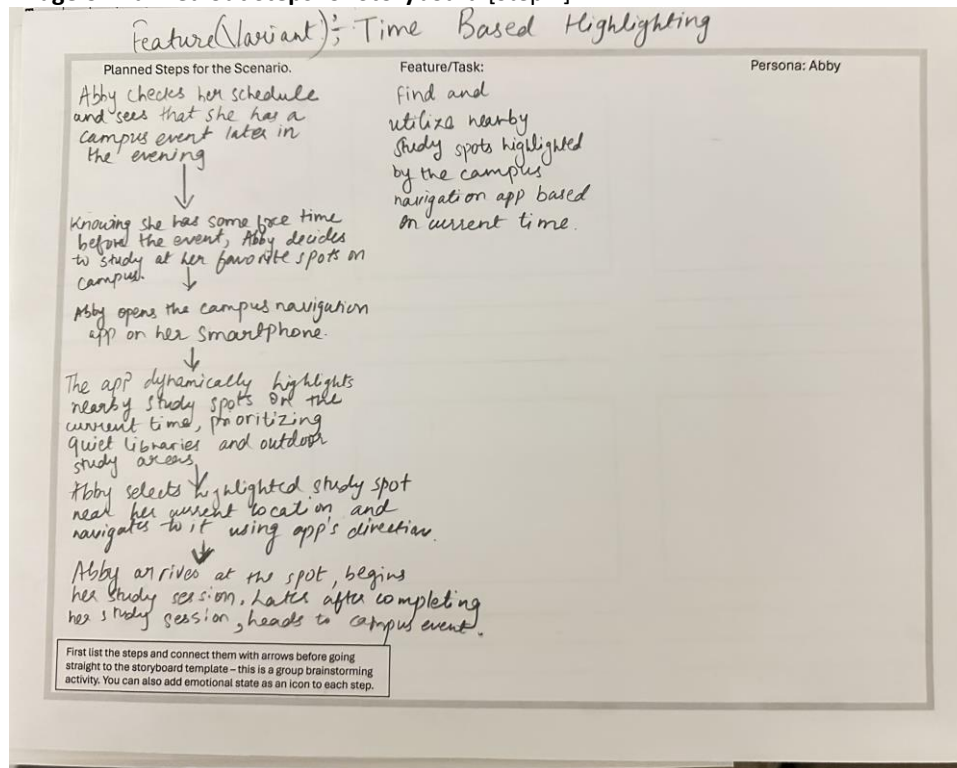 Feature(Variant): Time Based Highlighting
Planned Steps for the Scenario.
Abby checks her schedule
and sees that she has a
campus event later in
the evening
Knowing she has some free time
before the event, Abby decides
to study at her favorite spots on
campus.
Abby opens the campus navigation
app on her smartphone.
The app dynamically highlights
nearby study spots on the
current time, prioritizing
quiet libraries and outdoor
study areas
Abby selects highlighted study spot
near her current location and
navigates to it using app's direction.
Abby arrives at the spot, begins
her study session, Later after completing
her study session, heads to campus event.
First list the steps and connect them with arrows before going
straight to the storyboard template – this is a group brainstorming
activity. You can also add emotional state as an icon to each step.
Feature/Task:
Find and
utilize nearby
study spots highlighted
by the campus
navigation app based
on current time.
Persona: Abby